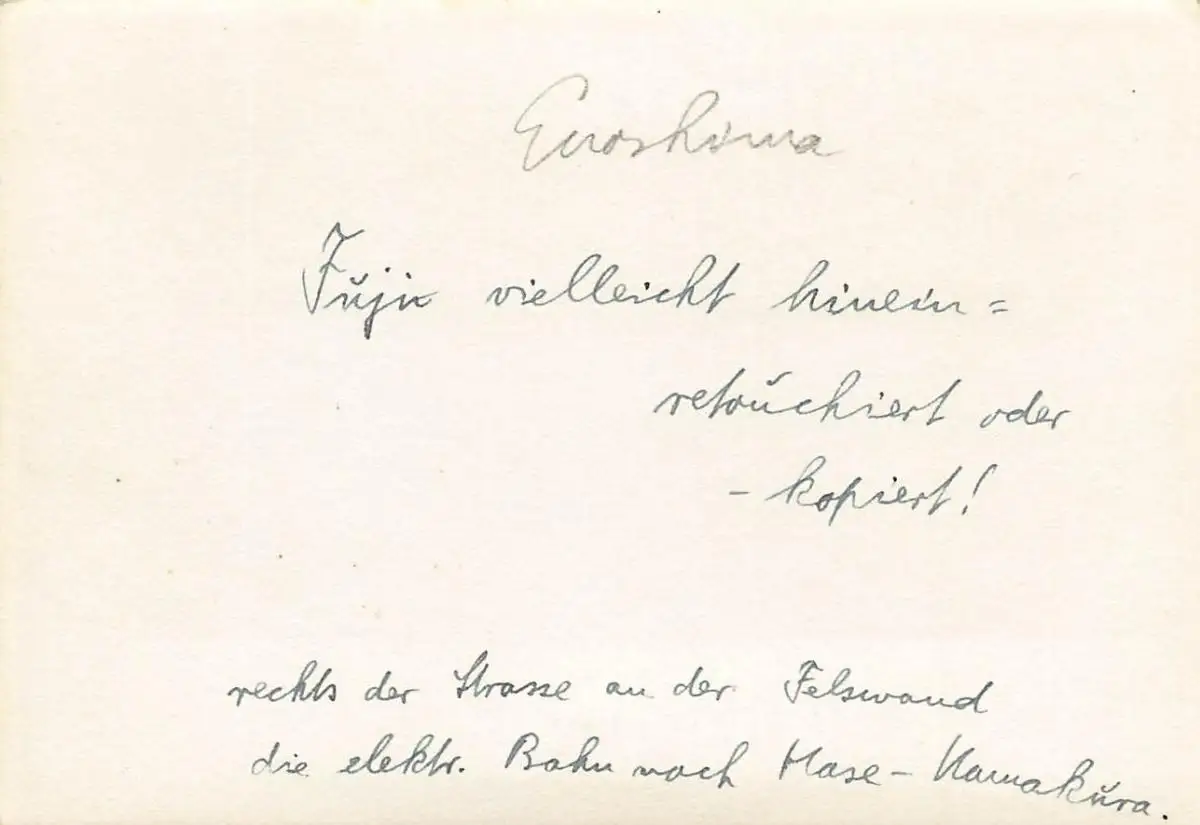 Enoshima
Fuji vielleicht hinein=
retouchiert oder
- kopiert!
rechts der Strasse an der Felswand
die elektr. Bahn nach Hase - Kamakura.